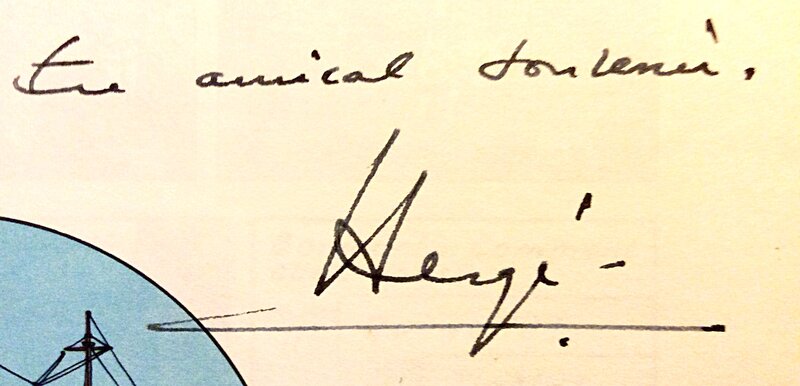 très amical souvenir.
Hergé